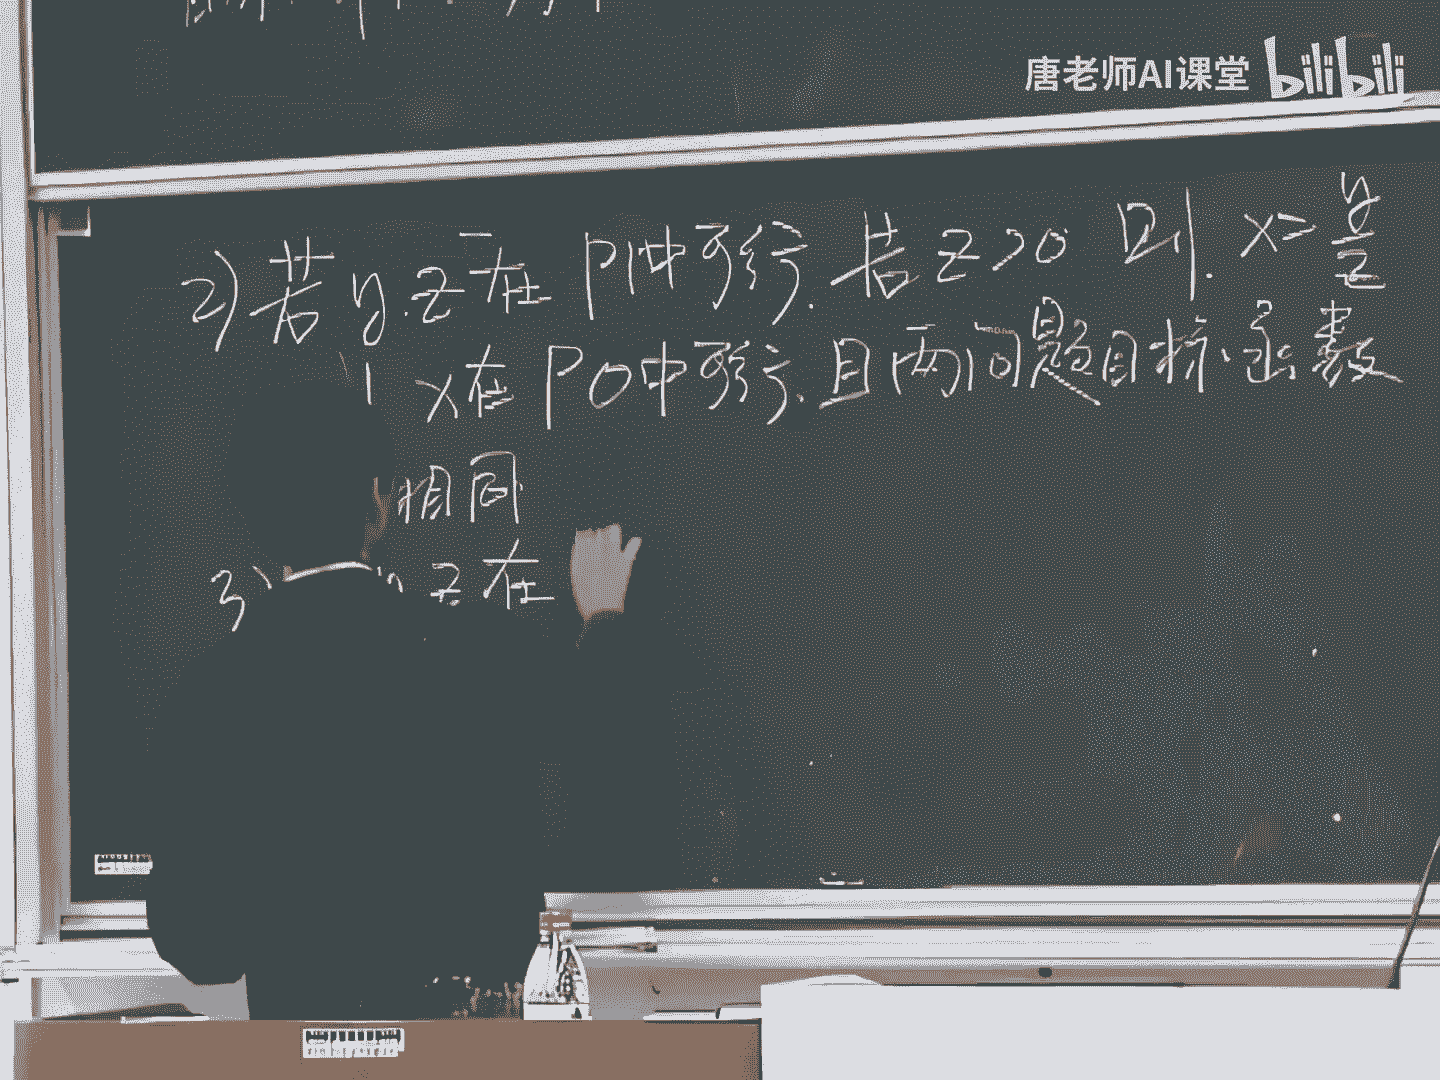 唐老师AI课堂 bilibili
2) 若 y.z 在 P1中可行. 若 z>0 则. x=y/z
x在 P0中可行. 且两问题目标函数
相同
3) z在